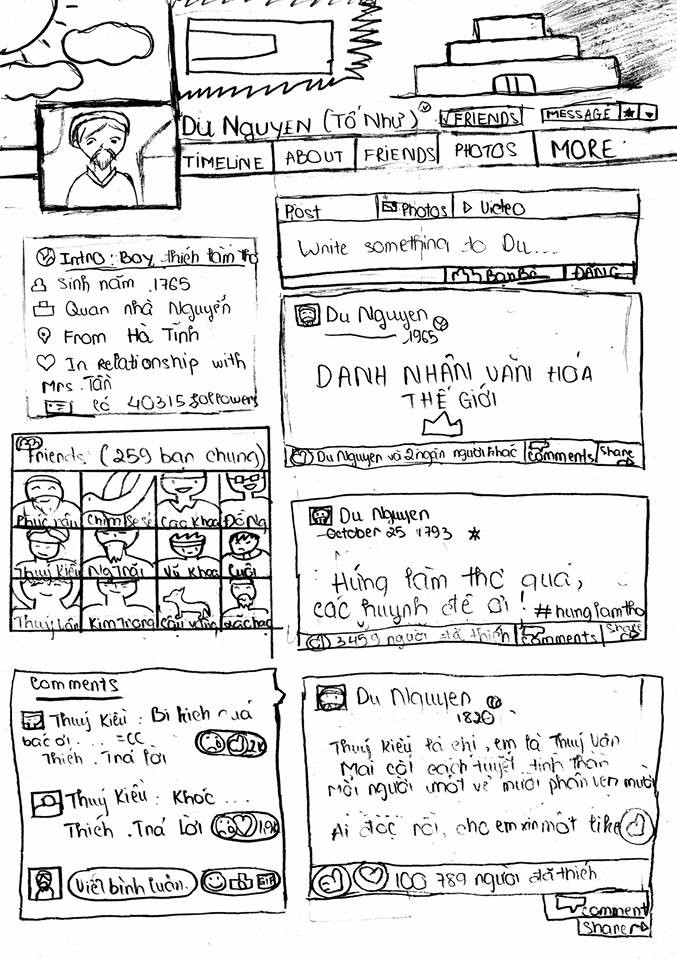 Du Nguyen (Tố Như)
FRIENDS
MESSAGE
TIMELINE
ABOUT
FRIENDS
PHOTOS
MORE
Post
Photos
Video
Write something to Du...
Bạn Bè
ĐĂNG
Intro: Boy thích làm thơ
Sinh năm 1765
Quan nhà Nguyễn
From Hà Tĩnh
In Relationship with
Mrs. Tần
Có 40315 followers
Du Nguyen
1965
DANH NHÂN VĂN HÓA
THẾ GIỚI
Du Nguyen và 2 ngàn người khác
comments
share
Friends (259 bạn chung)
Phúc râu
Chim Se sẻ
Cao Khoa
Đồ Ng
Thuý Kiều
Ng Trãi
Vũ Khoa
Cuội
Thuý Vân
Kim Trọng
Cậu Vàng
Du Nguyen
October 25 1793
Hứng làm thơ quá,
các huynh đệ ơi! #hunglamtho
3459 người đã thích
comments
share
Comments
Thuý Kiều: Bi kịch quá
bác ơi.... =CC
Thích. Trả lời
2K
Thuý Kiều: Khóc ...
Thích. Trả Lời
1,9K
Viết bình luận.
GIF
Du Nguyen
1820
Thuý Kiều là chị, em là Thuý Vân
Mai cốt cách tuyết tinh thần
Mỗi người một vẻ mười phân vẹn mười
Ai đọc rồi, cho em xin một like
100 789 người đã thích
comment
share